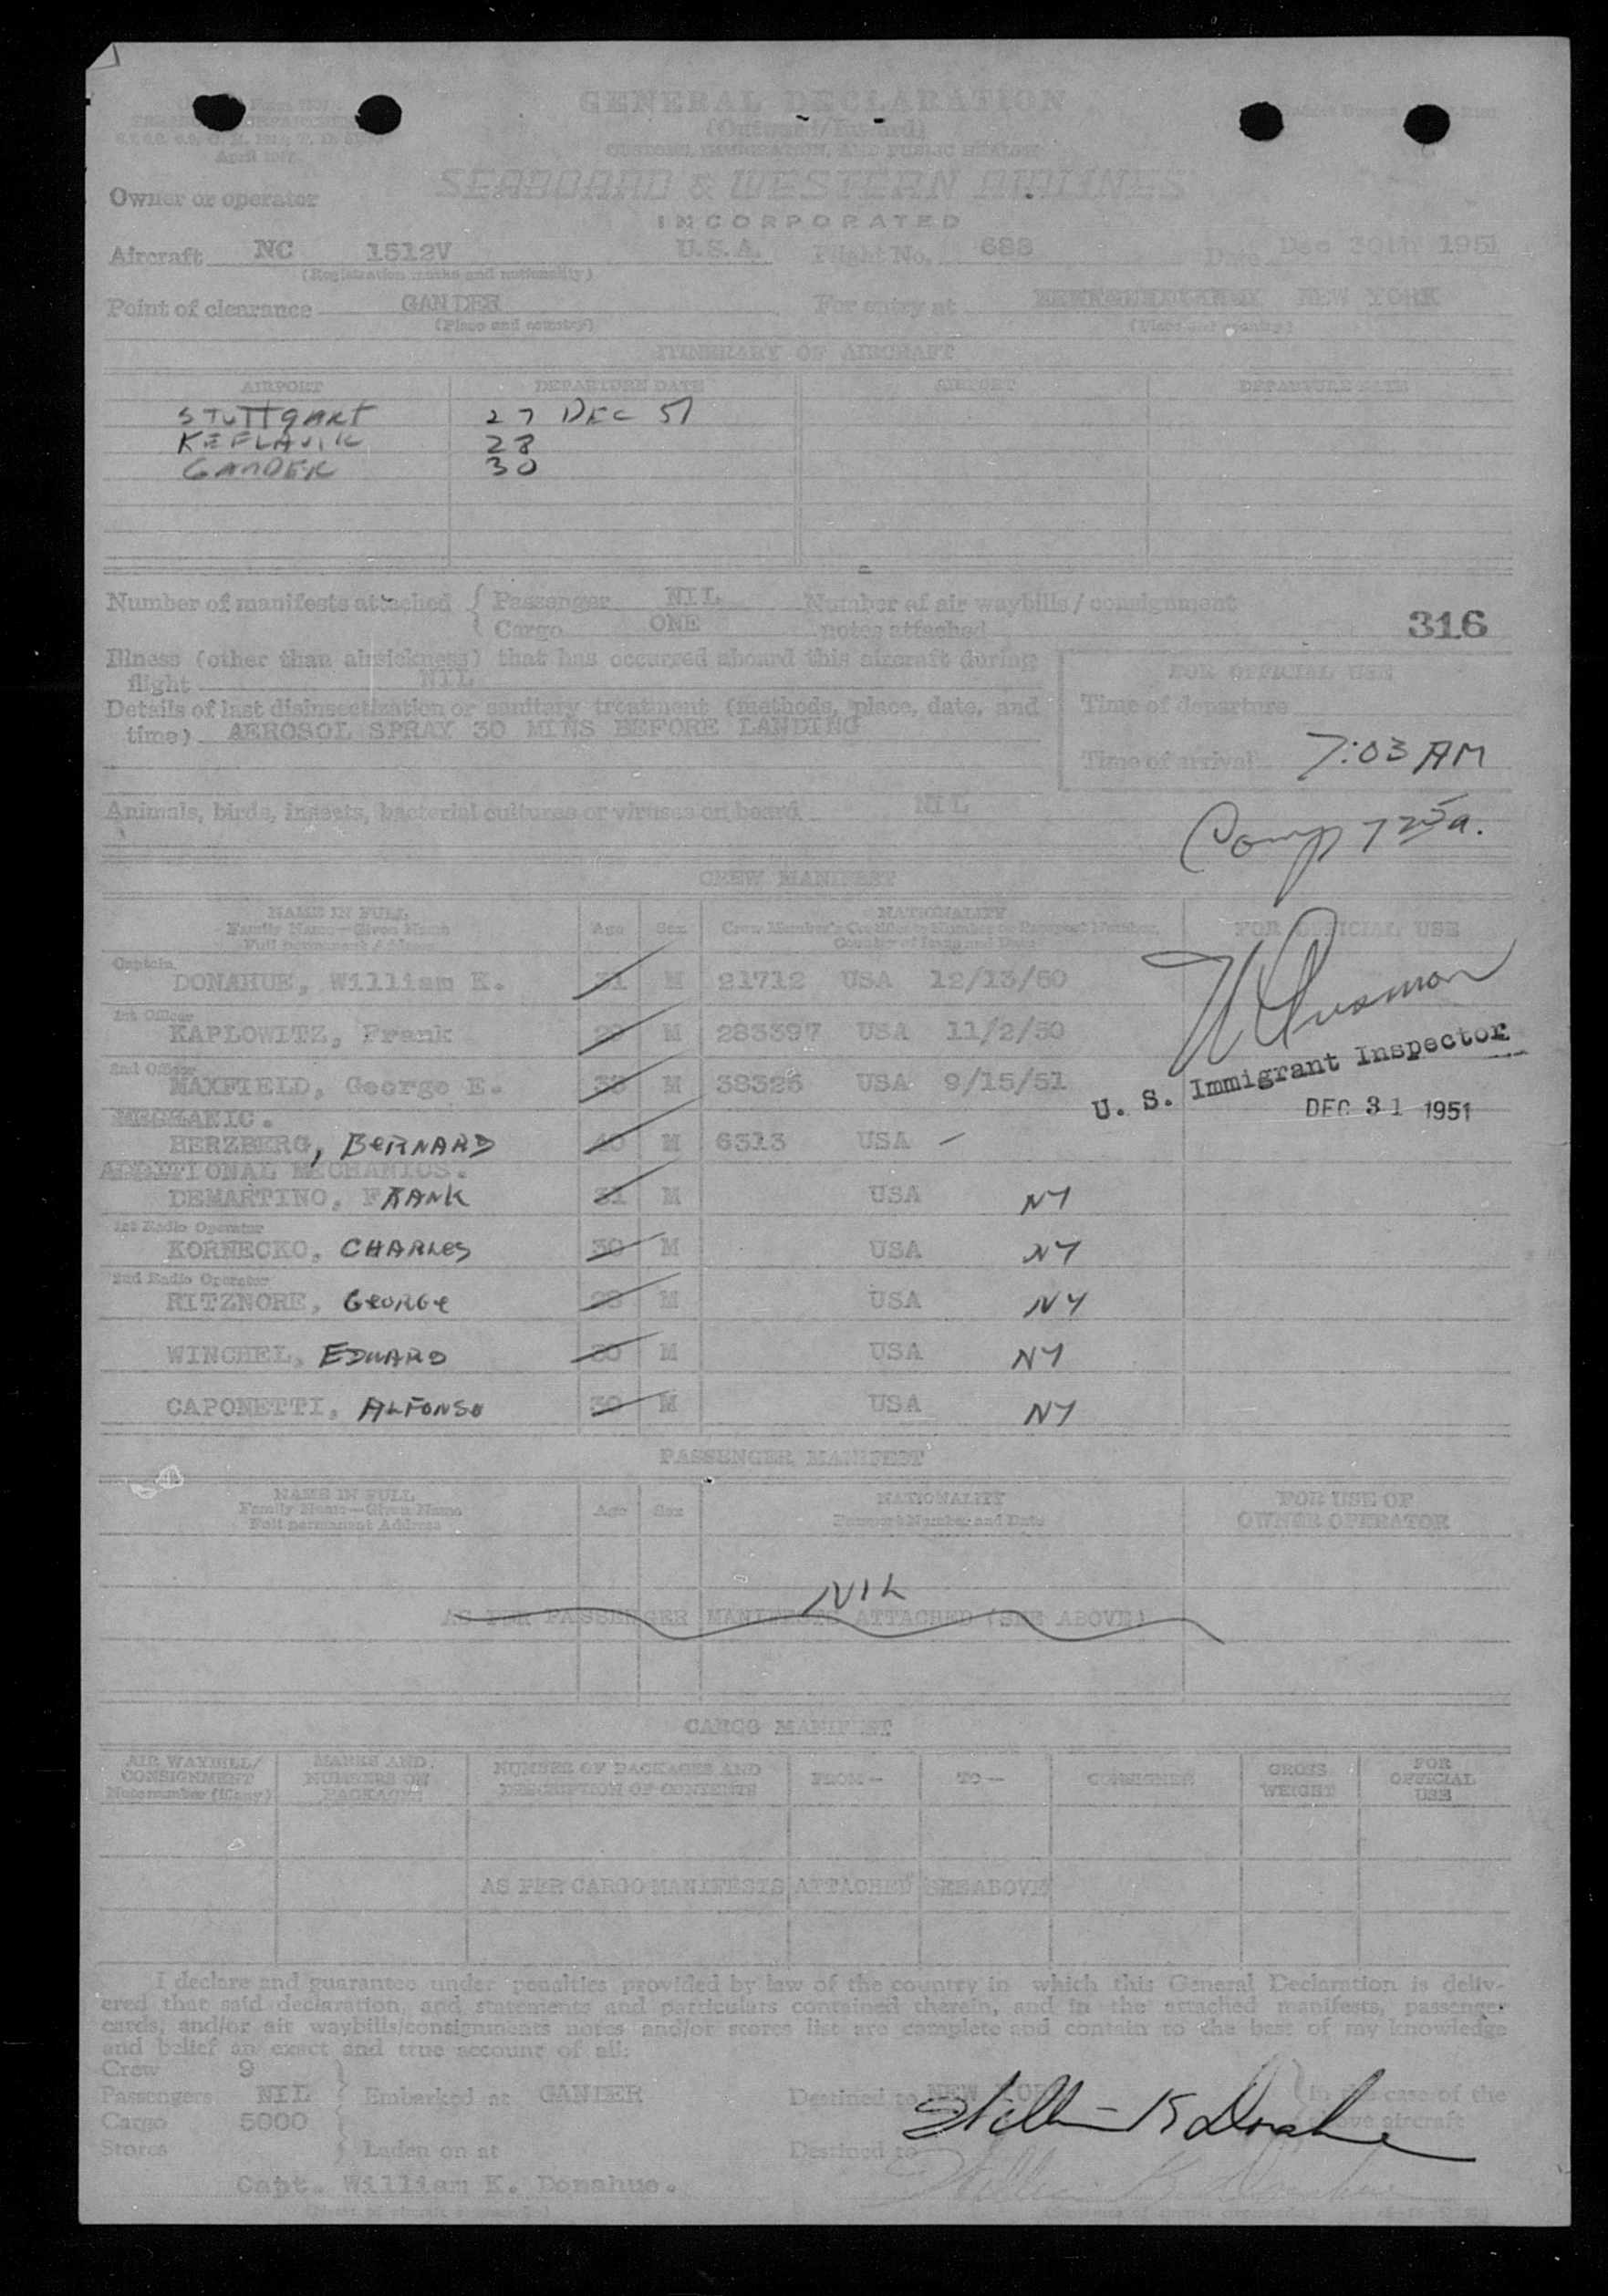 GENERAL DECLARATION
(Outward/Inward)
CUSTOMS, IMMIGRATION, AND PUBLIC HEALTH
April 1947
Owner or operator SEABOARD & WESTERN AIRLINES
INCORPORATED
Aircraft NC 1512V U.S.A. Flight No. 688 Date Dec 30th 1951
(Registration marks and nationality)
Point of clearance GANDER For entry at NEW YORK
(Place and country) (Place and country)
ITINERARY OF AIRCRAFT
AIRPORT DEPARTURE DATE AIRPORT DEPARTURE DATE
STUTTgART 27 DEC 51
KEFLAVIK 28
GANDER 30
Number of manifests attached { Passenger NIL Number of air waybills / consignment
Cargo ONE notes attached
316
Illness (other than airsickness) that has occurred aboard this aircraft during
flight NIL
FOR OFFICIAL USE
Details of last disinsectization or sanitary treatment (methods, place, date, and
time) AEROSOL SPRAY 30 MINS BEFORE LANDING
Time of departure
Time of arrival 7:03 AM
Animals, birds, insects, bacterial cultures or viruses on board NIL
Comp 725a.
CREW MANIFEST
NAME IN FULL
Family Name—Given Name
Full permanent Address
Age Sex NATIONALITY
Crew Member's Certificate Number or Passport Number,
Country of Issue and Date
FOR OFFICIAL USE
Captain
DONAHUE, William K. 31 M 21712 USA 12/13/50
1st Officer
KAPLOWITZ, Frank M 283397 USA 11/2/50
2nd Officer
MAXFIELD, George E. M 38326 USA 9/15/51
U. S. Immigrant Inspector
DEC 31 1951
MECHANIC.
HERZBERG, BERNARD M 6313 USA –
ADDITIONAL MECHANICS.
DEMARTINO, FRANK 31 M USA NY
1st Radio Operator
KORNECKO, CHARLES 30 M USA NY
2nd Radio Operator
RITZNORE, GeORGe M USA NY
WINCHEL, EDWARD M USA NY
CAPONETTI, ALFONSO M USA NY
PASSENGER MANIFEST
NAME IN FULL
Family Name—Given Name
Full permanent Address
Age Sex NATIONALITY
Passport Number and Date
FOR USE OF
OWNER OPERATOR
NIL
AS PER PASSENGER MANIFESTS ATTACHED (SEE ABOVE)
CARGO MANIFEST
AIR WAYBILL/
CONSIGNMENT
Note number (if any)
MARKS AND
NUMBERS ON
PACKAGES
NUMBER OF PACKAGES AND
DESCRIPTION OF CONTENTS
FROM— TO— CONSIGNEE
GROSS
WEIGHT
FOR
OFFICIAL
USE
AS PER CARGO MANIFESTS ATTACHED SEE ABOVE
I declare and guarantee under penalties provided by law of the country in which this General Declaration is deliv-
ered that said declaration, and statements and particulars contained therein, and in the attached manifests, passenger
cards, and/or air waybills/consignments notes and/or stores list are complete and contain to the best of my knowledge
and belief an exact and true account of all:
Crew 9
Passengers NIL Embarked at GANDER Destined to NEW YORK (In the case of the
Cargo 5000 above aircraft
Stores Laden on at Destined to
William K Donahue
Capt. William K. Donahue.